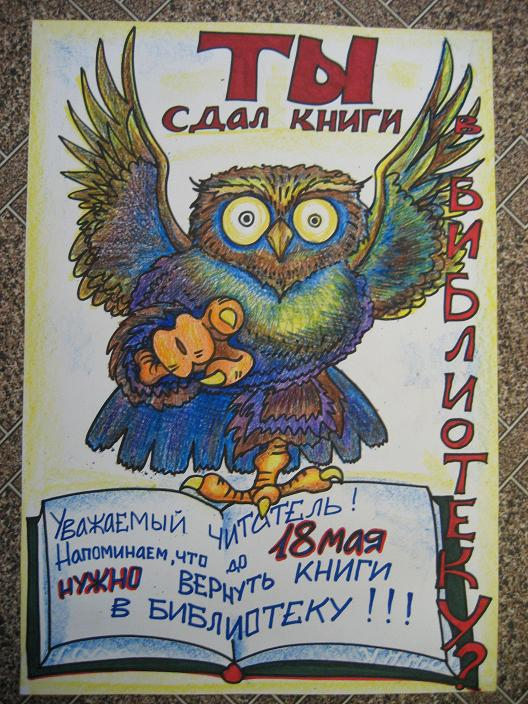 ТЫ
СДАЛ КНИГИ
В БИБЛИОТЕКУ?
УВАЖАЕМЫЙ ЧИТАТЕЛЬ!
НАПОМИНАЕМ, ЧТО ДО 18 МАЯ
НУЖНО ВЕРНУТЬ КНИГИ
В БИБЛИОТЕКУ!!!